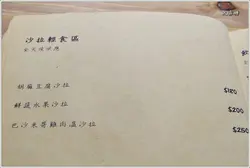 沙拉輕食區
全天候供應
胡麻豆腐沙拉
$180
鮮蔬水果沙拉
$200
巴沙米哥雞肉溫沙拉
$250